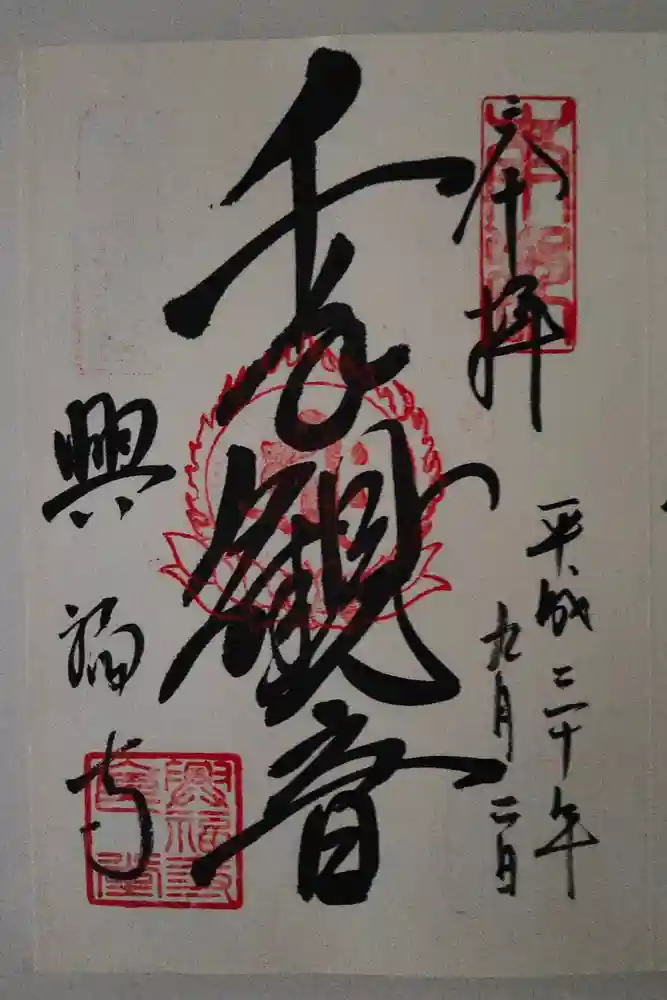 奉拝
平成三十年
九月二日
千手観音
興福寺
興福寺